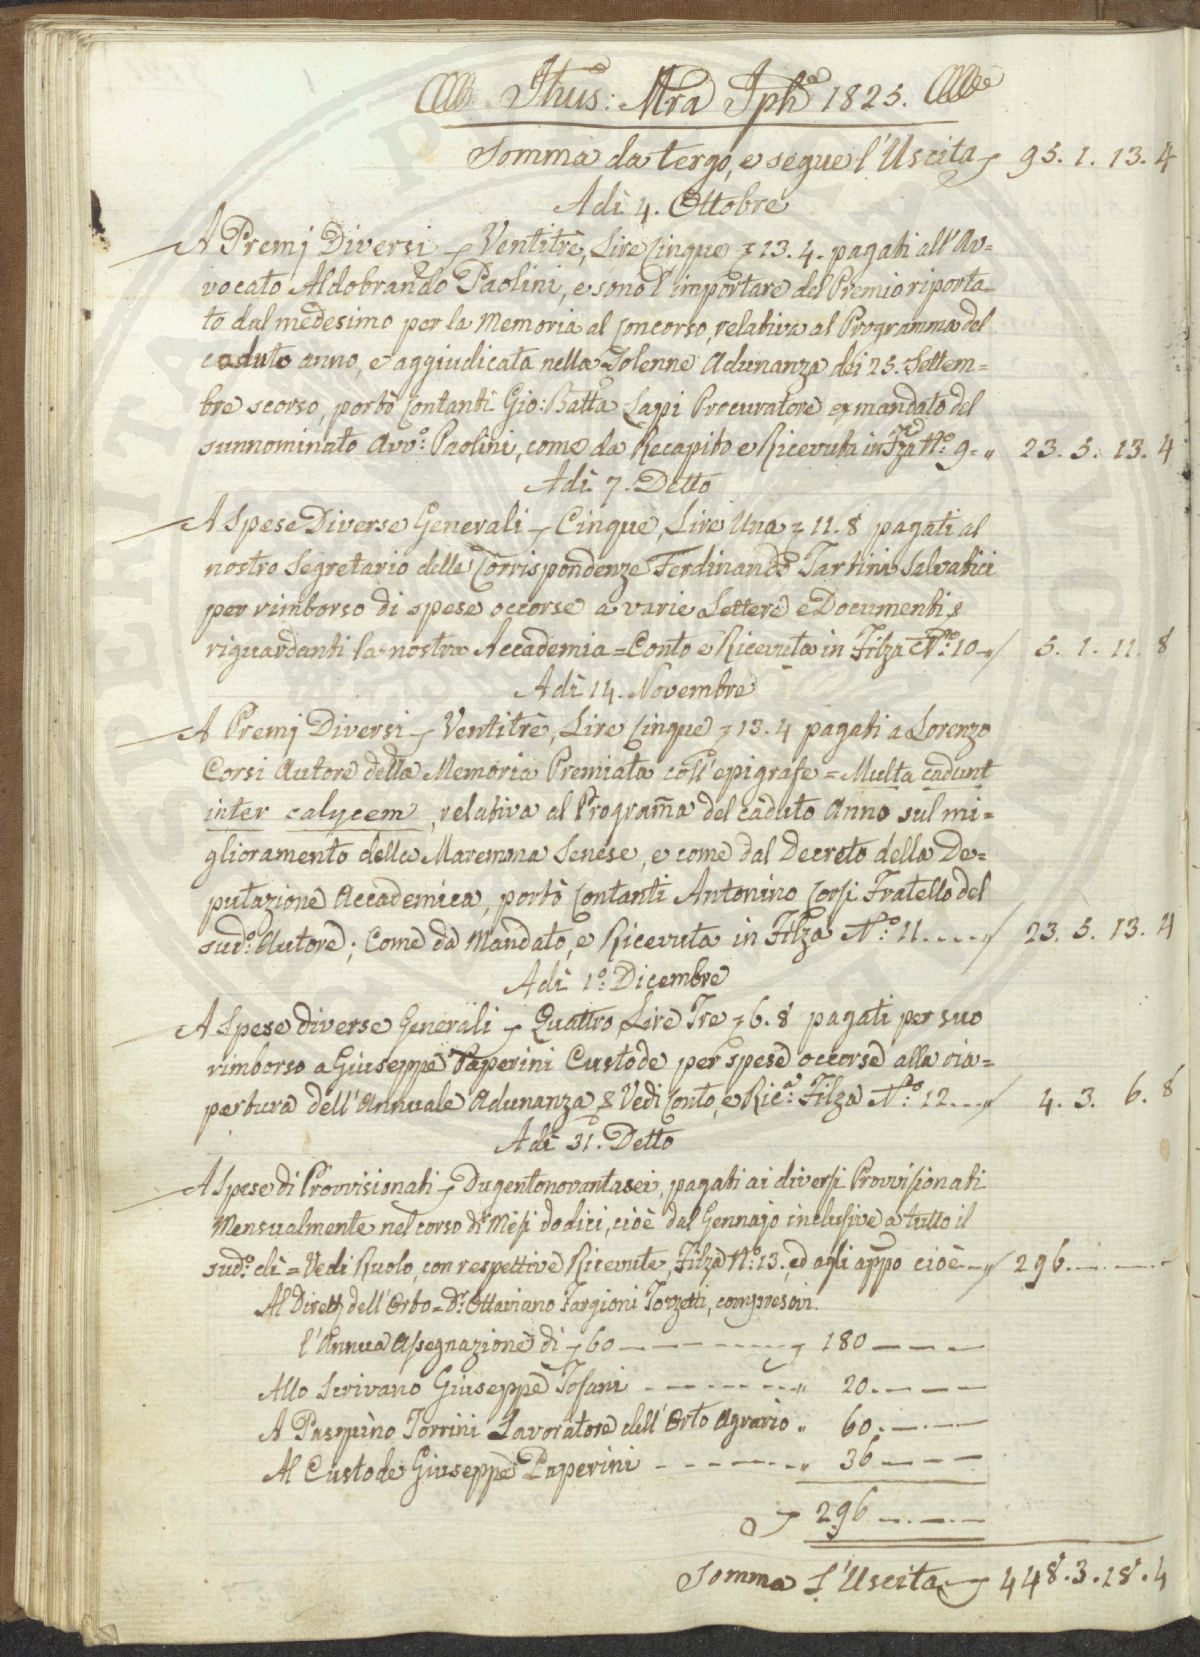 Jhus: Mra Jphᵒ 1825.
Somma da tergo, e segue l'Uscita 95. 1. 13. 4
Adì 4. Ottobre
A Premj Diversi Ventitrè, Lire Cinque 13. 4. pagati all'Av=
vocato Aldobrando Paolini, e sono l'importare del Premio riporta=
to dal medesimo per la Memoria al Concorso, relativa al Programma del
caduto anno, e aggiudicata nella Solenne Adunanza dei 25. Settem=
bre scorso, portò Contanti Gio: Batta Lapi Procuratore ex mandato del
sunnominato Avv:ᵒ Paolini, come da Recapito e Ricevuta in Fzᵃ Nᵒ: 9=„ 23. 5. 13. 4
Adì 7. Detto
A Spese Diverse Generali Cinque, Lire Una 11. 8 pagati al
nostro Segretario delle Corrispondenze Ferdinando Tartini Salvatici
per rimborso di spese occorse a varie Lettere e Documenti
riguardanti la nostra Accademia = Conto e Ricevuta in Filza Nᵒ: 10 5. 1. 11. 8
Adì 14. Novembre
A Premj Diversi Ventitrè, Lire Cinque 13. 4 pagati a Lorenzo
Corsi Autore della Memoria Premiata coll'epigrafe = Multa cadunt
inter calycem, relativa al Program̃a del caduto Anno sul mi=
glioramento della Maremma Senese, e come dal Decreto della De=
putazione Accademica, portò Contanti Antonino Corsi Fratello del
sudᵒ: Autore; Come da Mandato, e Ricevuta in Filza Nᵒ: 11....„ 23. 5. 13. 4
Adì 1ᵒ: Dicembre
A Spese diverse Generali Quattro Lire Tre 6. 8 pagati per suo
rimborso a Giuseppe Paperini Custode per spese occorse alla ria=
pertura dell'Annuale Adunanza & Vedi Conto, e Ricᵃ: Filza Nᵒ: 12....„ 4. 3. 6. 8
Adì 31. Detto
A Spese di Provvisionati Dugentonovantasei, pagati ai diversi Provvisionati
Mensualmente nel corso di Mesi dodici, cioè dal Gennajo inclusive a tutto il
sudᵒ: dì = Vedi Ruolo, con respettive Ricevute, Filza Nᵒ: 13., ed agli appo cioè „ 296.
Al Dirett dell'Orto = Dʳ: Ottaviano Targioni Tozzetti, compresovi
l'Annua Assegnazione di 60 180
Allo Scrivano Giuseppe Tofani „ 20.
A Pasquino Torrini Lavoratore dell'Orto Agrario „ 60.
Al Custode Giuseppe Paperini „ 36
296
Somma L'Uscita 448. 3. 18. 4